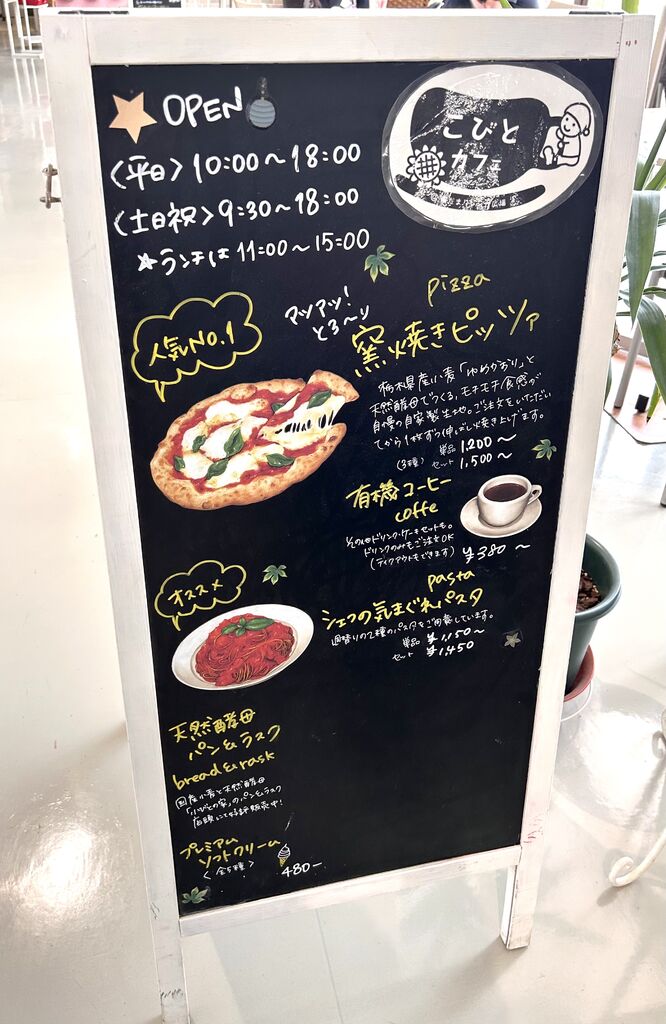 OPEN
こびと
カフェ
<平日> 10:00～18:00
<土日祝> 9:30～18:00
☆ランチは 11:00～15:00
人気No.1
アツアツ!
とろ～り
pizza
窯焼きピッツァ
栃木県産小麦「ゆめかおり」と
天然酵母でつくる、モチモチ食感が
自慢の自家製生地。ご注文をいただい
てから1枚ずつ伸ばし焼き上げます。
(3種) 単品 1,200～
セット 1,500～
有機コーヒー
coffe
その他ドリンク・ケーキセットも。
ドリンクのみもご注文OK
(テイクアウトもできます) ¥380～
オススメ
pasta
シェフの気まぐれパスタ
週替りの2種のパスタをご用意しています。
単品 ¥1,150～
セット ¥1,450
天然酵母
パン&ラスク
bread&rask
国産小麦と天然酵母
「こびとの家」のパン&ラスク
店頭にて好評販売中!
プレミアム
ソフトクリーム
<全5種> 480-